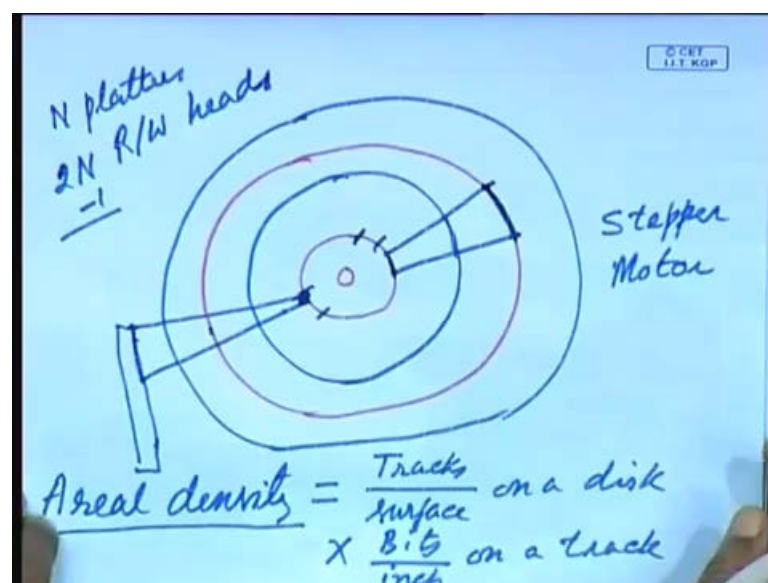 © CET
I.I.T. KGP
N platters
2N R/W heads
-1
Stepper
Motor
Areal density = Tracks/surface on a disk
× Bits/inch on a track